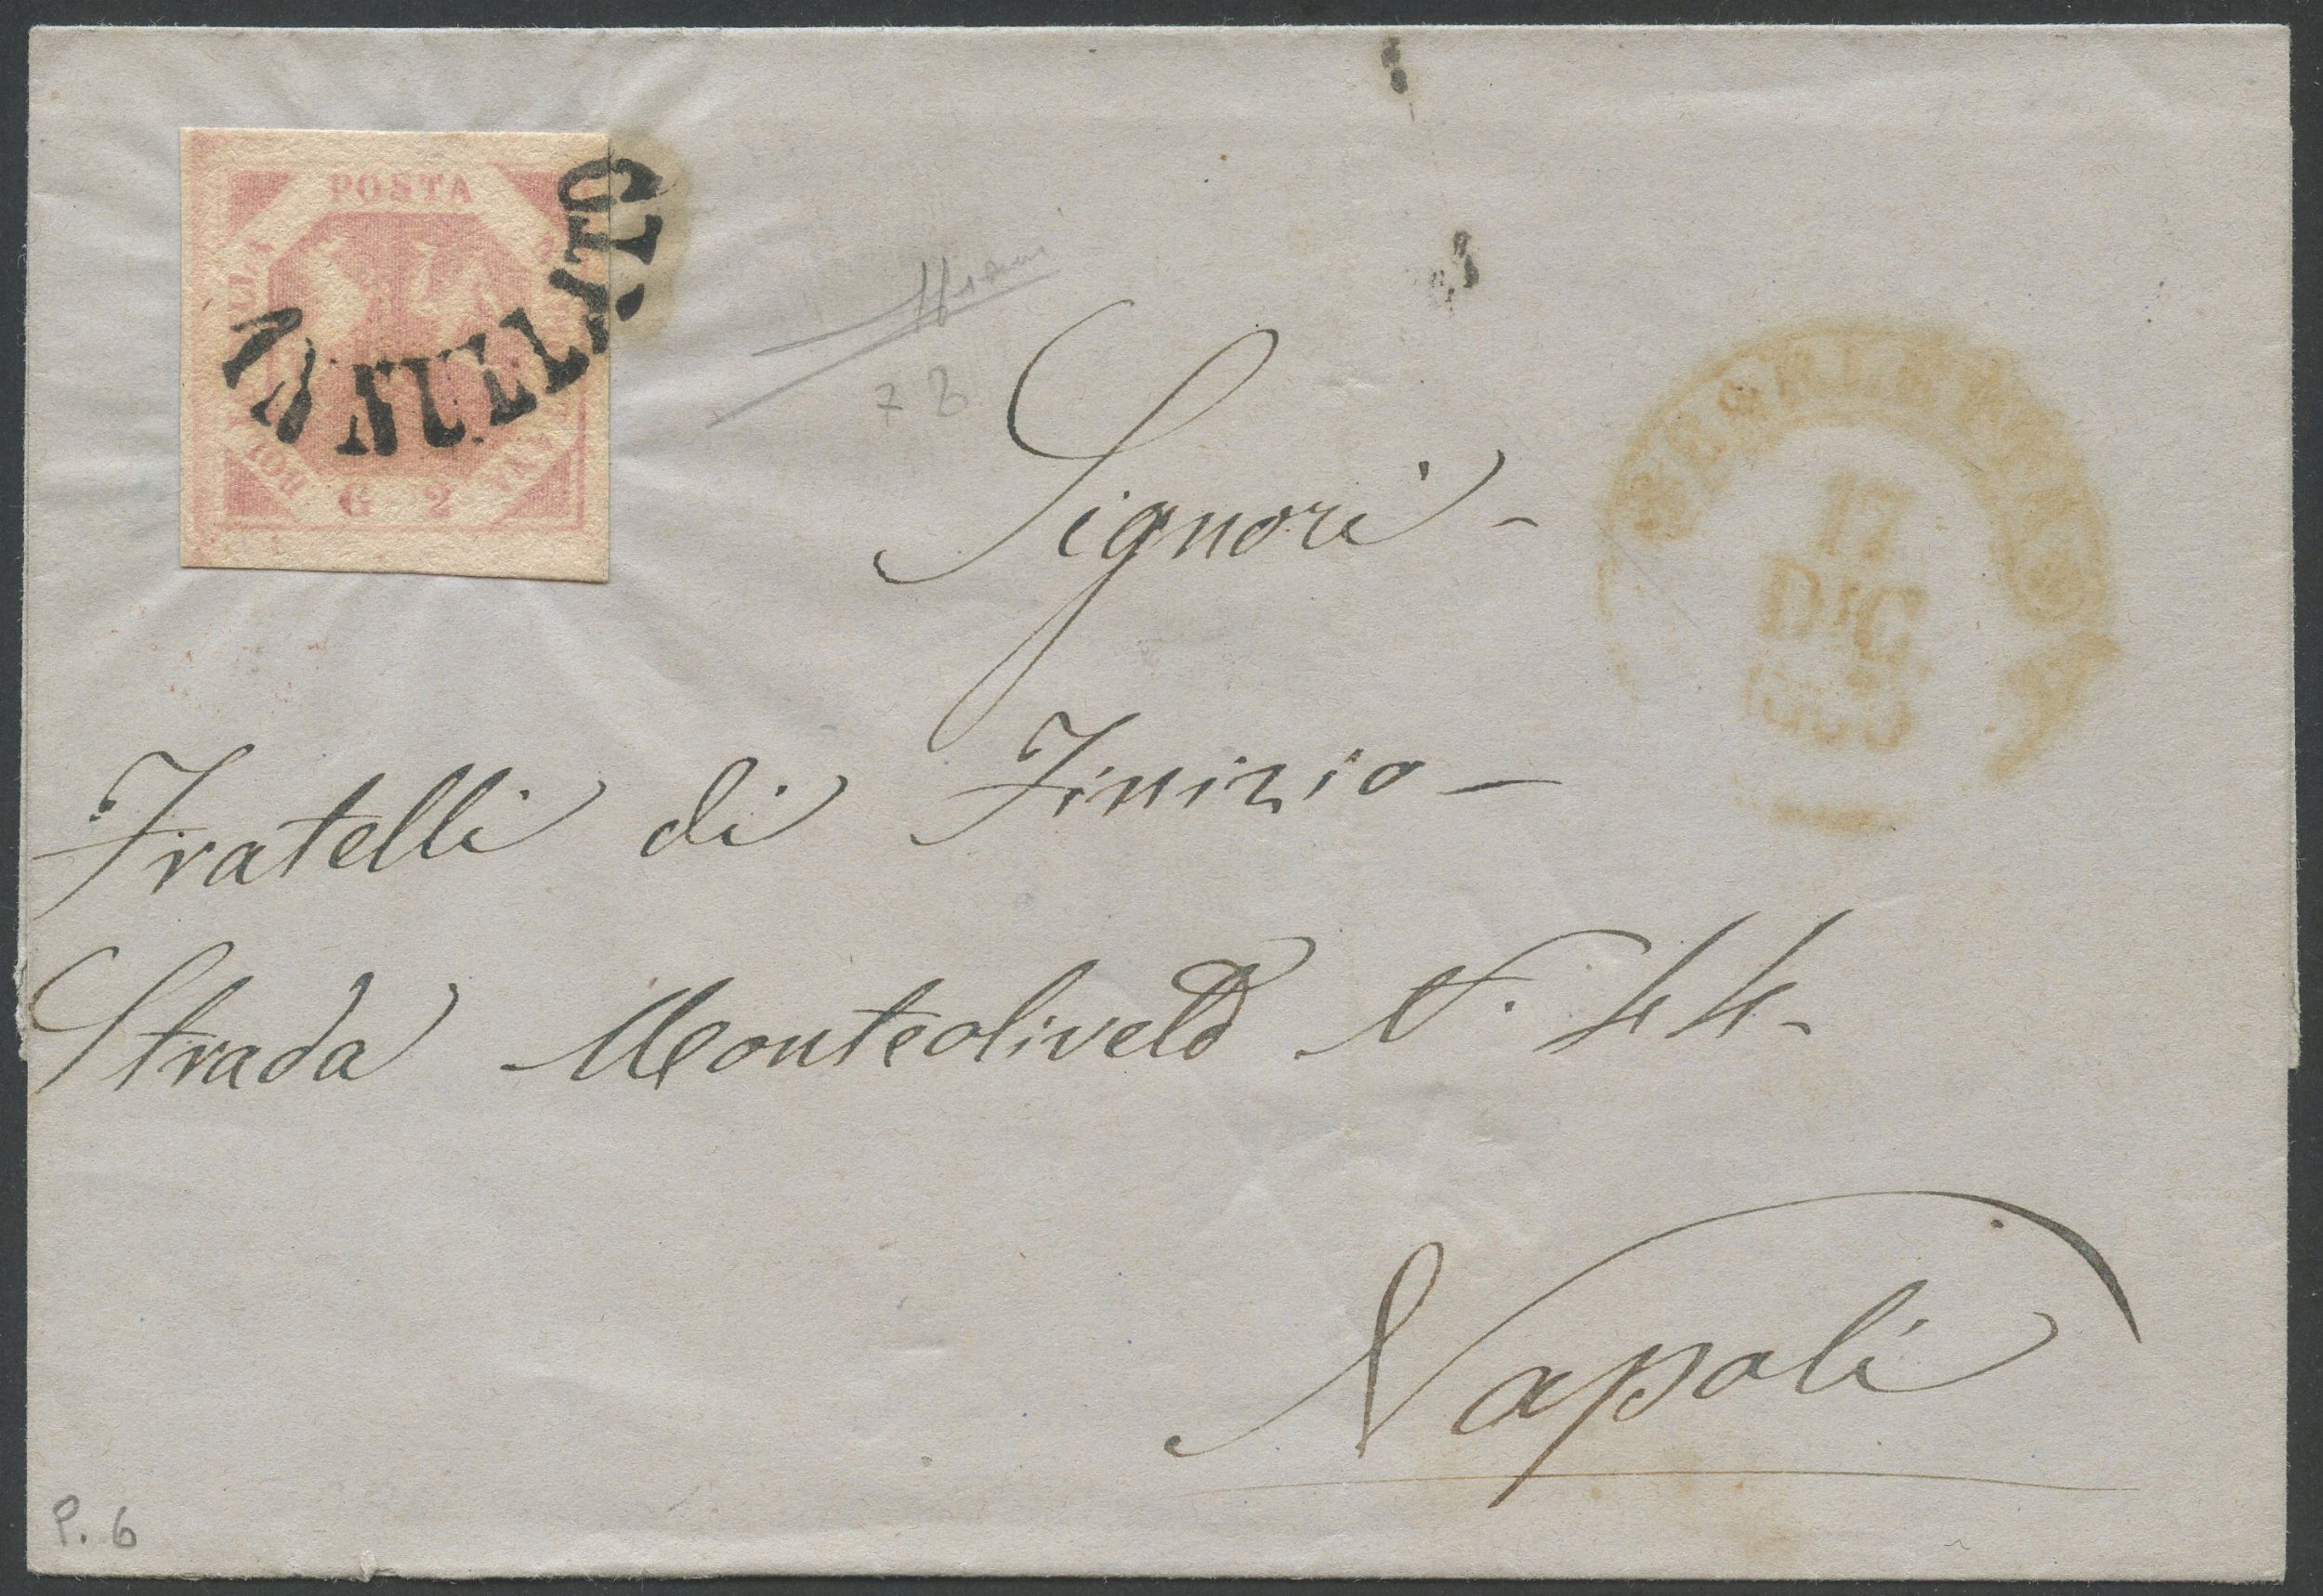 POSTA
NAPOLETANA
BOLLA
G 2
ANNULLATO
7 B
17
DIC
Signori -
Fratelli di Finizio -
Strada Monteoliveto N. 44 -
Napoli
P. 6